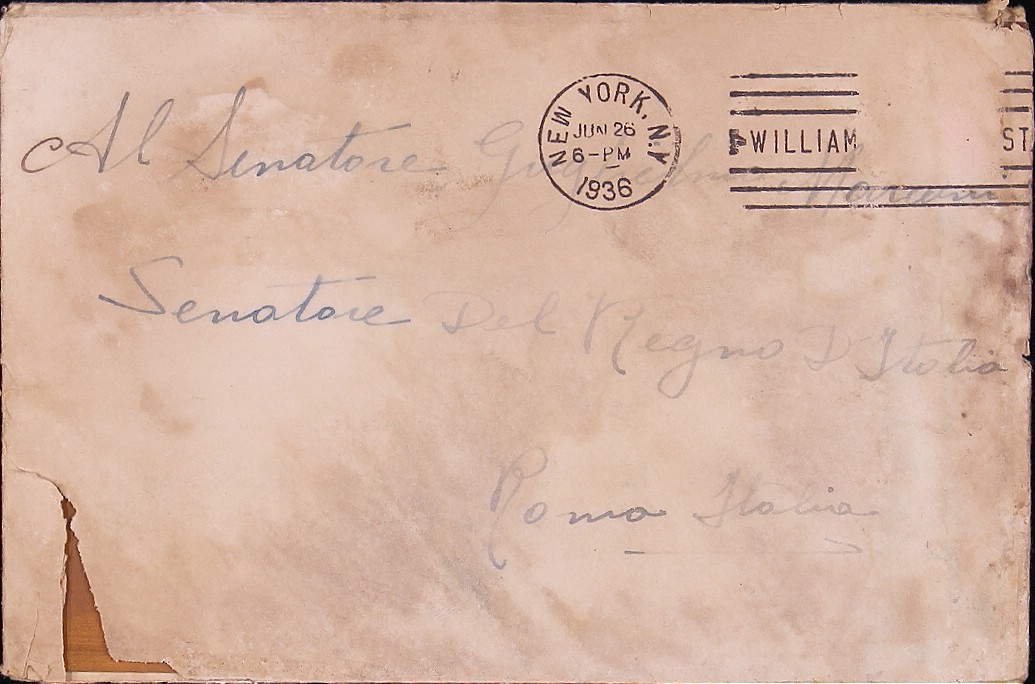 NEW YORK, N.Y.
JUN 26
6-PM
1936
WILLIAM ST
Al Senatore Guglielmo Marconi
Senatore Del Regno D'Italia
Roma Italia